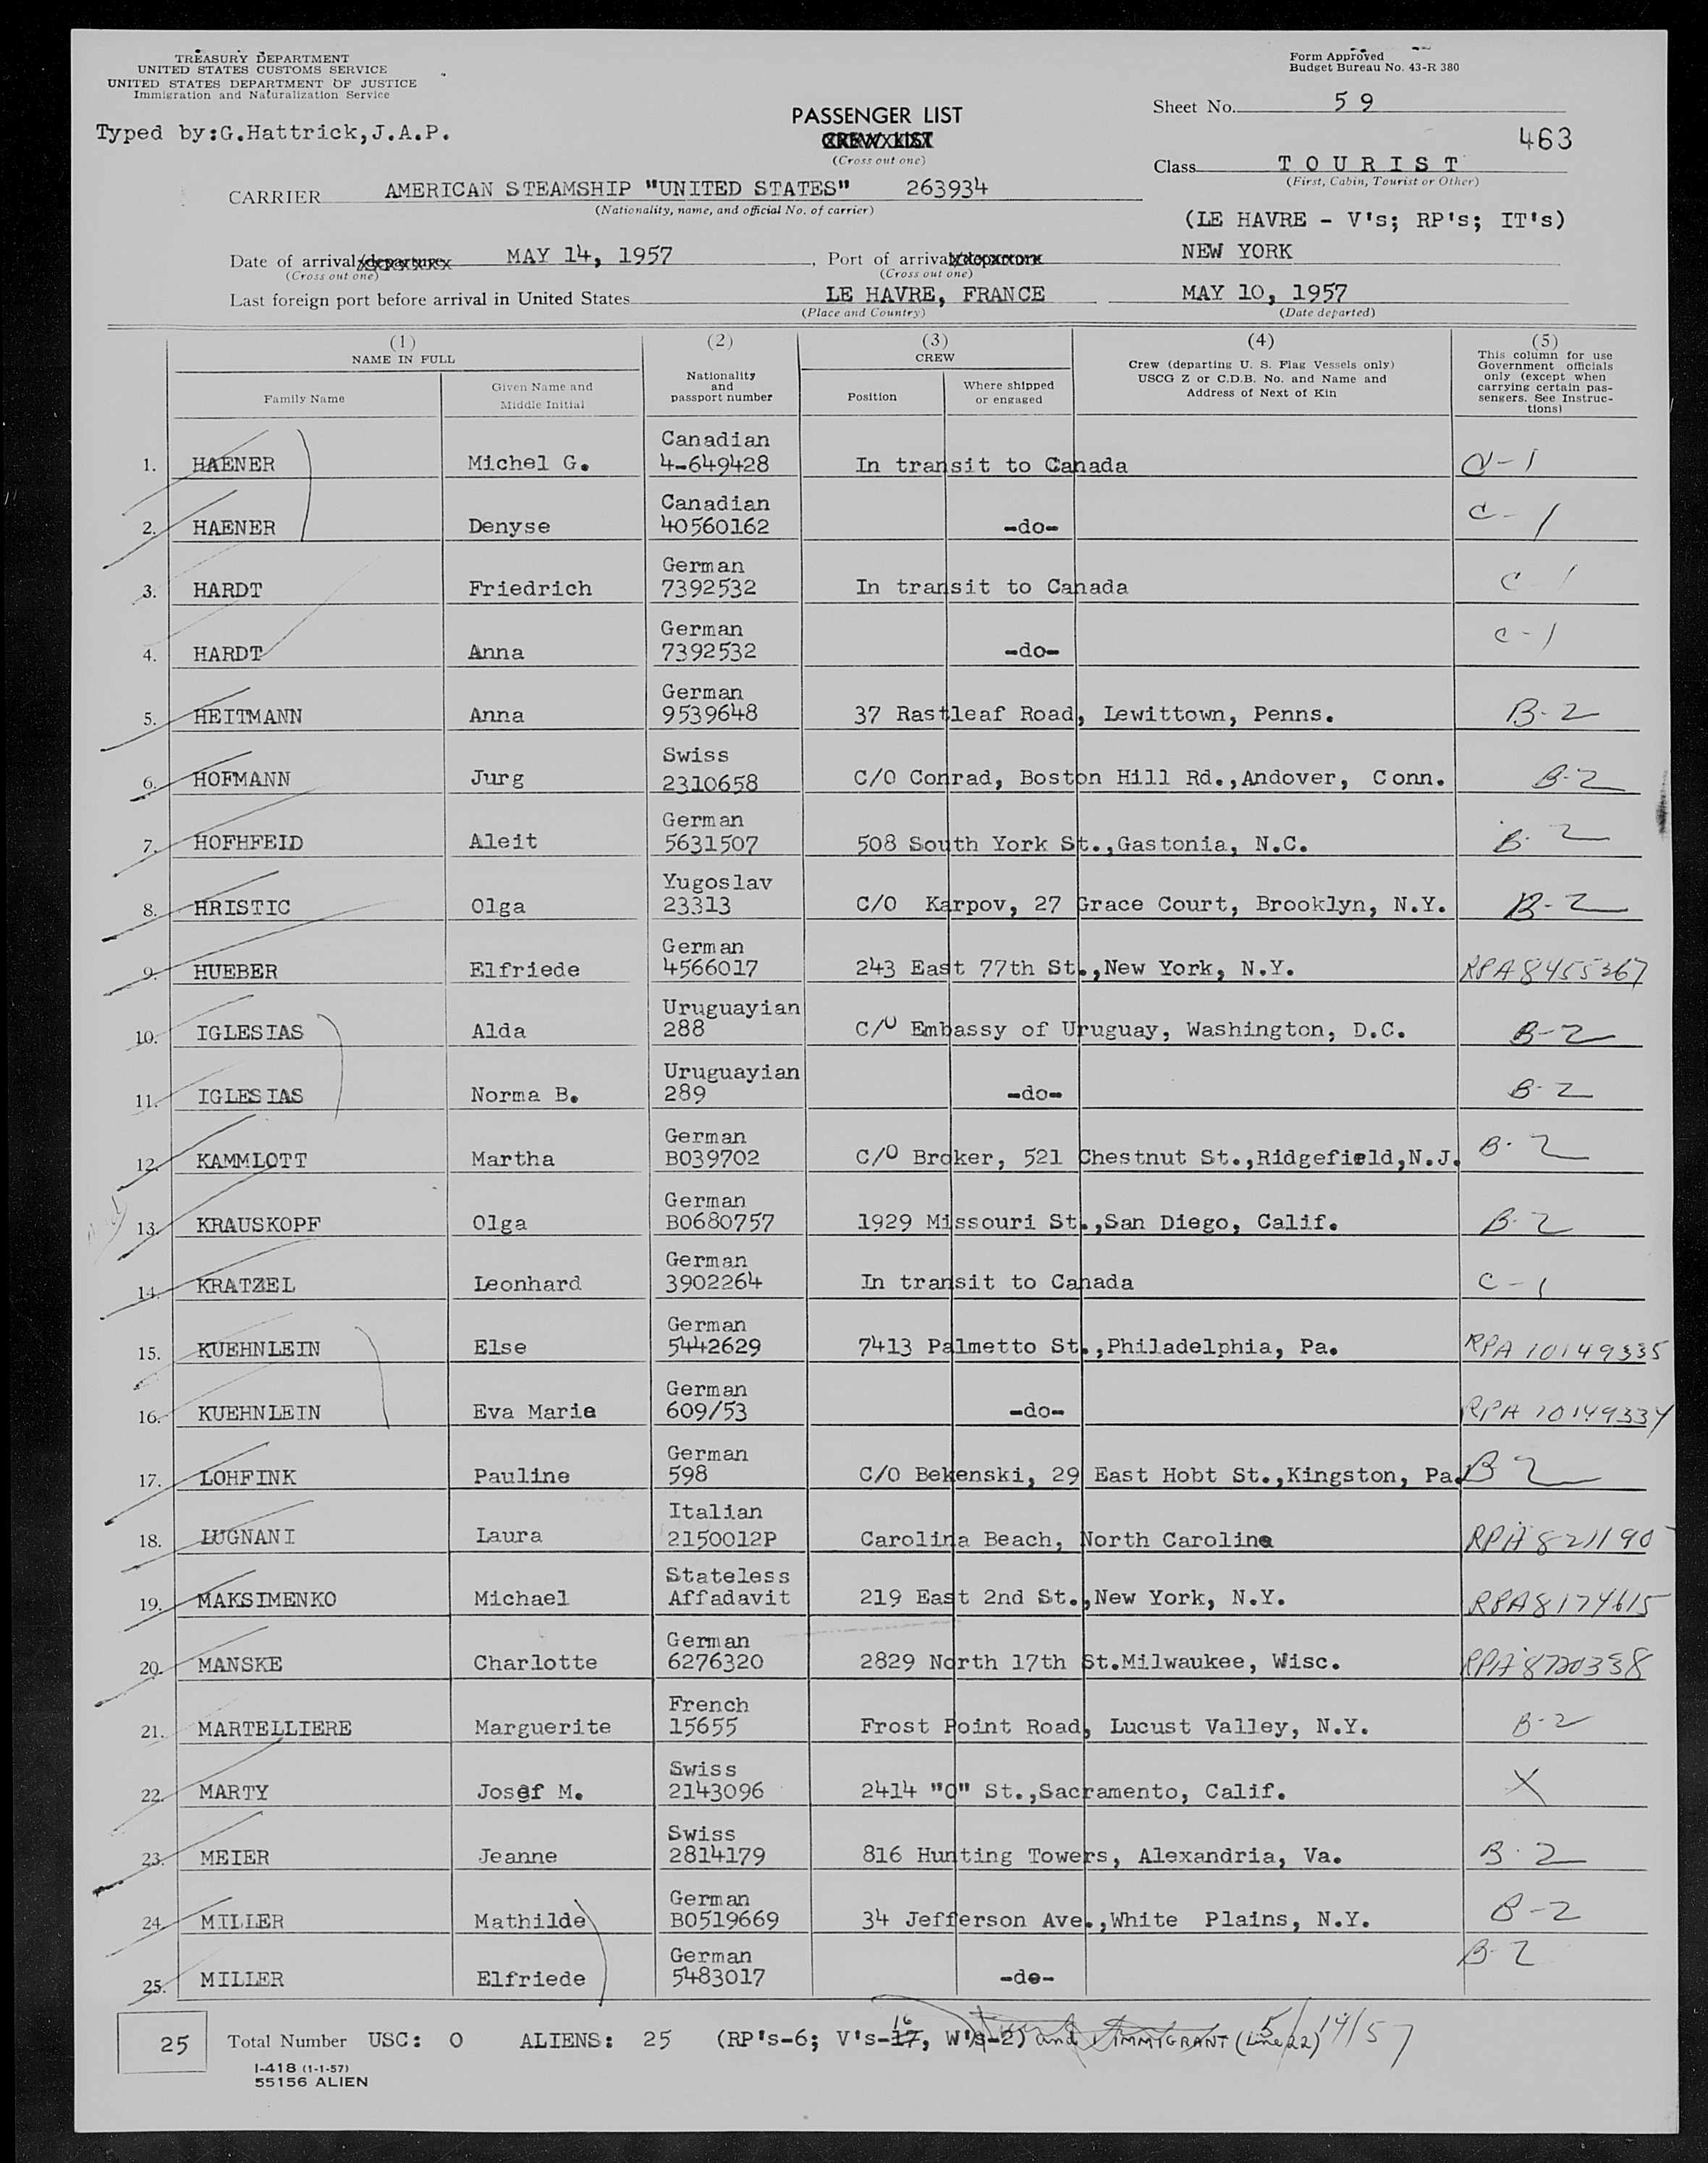 TREASURY DEPARTMENT
UNITED STATES CUSTOMS SERVICE
UNITED STATES DEPARTMENT OF JUSTICE
Immigration and Naturalization Service
Form Approved
Budget Bureau No. 43-R 380
Typed by:G.Hattrick,J.A.P.
PASSENGER LIST
CREW LIST
(Cross out one)
Sheet No. 59
463
Class TOURIST
(First, Cabin, Tourist or Other)
CARRIER AMERICAN STEAMSHIP "UNITED STATES" 263934
(Nationality, name, and official No. of carrier)
(LE HAVRE - V's; RP's; IT's)
Date of arrival/departure MAY 14, 1957, Port of arrival/departure NEW YORK
(Cross out one) (Cross out one)
Last foreign port before arrival in United States LE HAVRE, FRANCE MAY 10, 1957
(Place and Country) (Date departed)
(1) NAME IN FULL
Family Name
Given Name and Middle Initial
(2) Nationality and passport number
(3) CREW
Position
Where shipped or engaged
(4) Crew (departing U. S. Flag Vessels only) USCG Z or C.D.B. No. and Name and Address of Next of Kin
(5) This column for use Government officials only (except when carrying certain passengers. See Instructions)
1. HAENER Michel G. Canadian 4-649428 In transit to Canada C-1
2. HAENER Denyse Canadian 40560162 -do- C-1
3. HARDT Friedrich German 7392532 In transit to Canada C 1
4. HARDT Anna German 7392532 -do- C-1
5. HEITMANN Anna German 9539648 37 Rastleaf Road, Lewittown, Penns. B-2
6. HOFMANN Jurg Swiss 2310658 C/O Conrad, Boston Hill Rd.,Andover, Conn. B-2
7. HOFHFEID Aleit German 5631507 508 South York St.,Gastonia, N.C. B-2
8. HRISTIC Olga Yugoslav 23313 C/O Karpov, 27 Grace Court, Brooklyn, N.Y. B-2
9. HUEBER Elfriede German 4566017 243 East 77th St.,New York, N.Y. RPA8455367
10. IGLESIAS Alda Uruguayian 288 C/O Embassy of Uruguay, Washington, D.C. B-2
11. IGLESIAS Norma B. Uruguayian 289 -do- B-2
12. KAMMLOTT Martha German B039702 C/O Broker, 521 Chestnut St.,Ridgefield,N.J. B-2
13. KRAUSKOPF Olga German B0680757 1929 Missouri St.,San Diego, Calif. B-2
14. KRATZEL Leonhard German 3902264 In transit to Canada C-1
15. KUEHNLEIN Else German 5442629 7413 Palmetto St.,Philadelphia, Pa. RPA 10149335
16. KUEHNLEIN Eva Marie German 609/53 -do- RPA 10149334
17. LOHFINK Pauline German 598 C/O Bekenski, 29 East Hobt St.,Kingston, Pa. B 2
18. LUGNANI Laura Italian 2150012P Carolina Beach, North Carolina RPA 821190
19. MAKSIMENKO Michael Stateless Affadavit 219 East 2nd St.,New York, N.Y. RPA8174615
20. MANSKE Charlotte German 6276320 2829 North 17th St.Milwaukee, Wisc. RPA 8720338
21. MARTELLIERE Marguerite French 15655 Frost Point Road, Lucust Valley, N.Y. B-2
22. MARTY Josef M. Swiss 2143096 2414 "O" St.,Sacramento, Calif. X
23. MEIER Jeanne Swiss 2814179 816 Hunting Towers, Alexandria, Va. B-2
24. MILLER Mathilde German B0519669 34 Jefferson Ave.,White Plains, N.Y. B-2
25. MILLER Elfriede German 5483017 -do- B-2
16
25 Total Number USC: 0 ALIENS: 25 (RP's-6; V's-17, W's-2) and 1 IMMIGRANT (Line 22) 5/14/57
I-418 (1-1-57)
55156 ALIEN